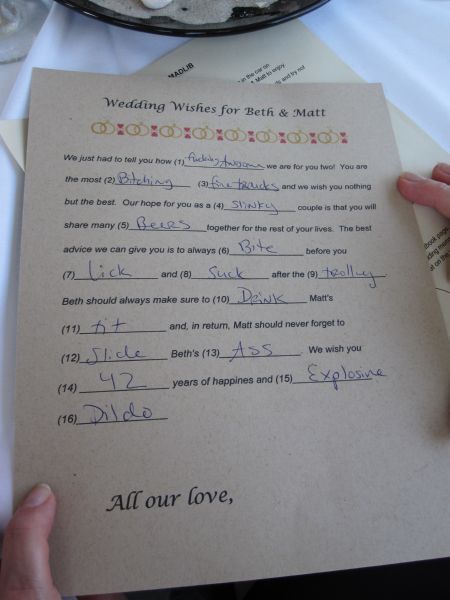 MADLIB
in the car on
Matt to enjoy.
ds and try not
Wedding Wishes for Beth & Matt
We just had to tell you how (1) fucking awesome we are for you two! You are
the most (2) Bitching (3) firetrucks and we wish you nothing
but the best. Our hope for you as a (4) stinky couple is that you will
share many (5) Beers together for the rest of your lives. The best
advice we can give you is to always (6) Bite before you
(7) Lick and (8) Suck after the (9) trolley
Beth should always make sure to (10) Drink Matt's
(11) tit and, in return, Matt should never forget to
(12) Slide Beth's (13) Ass. We wish you
(14) 42 years of happines and (15) Explosive
(16) Dildo
All our love,